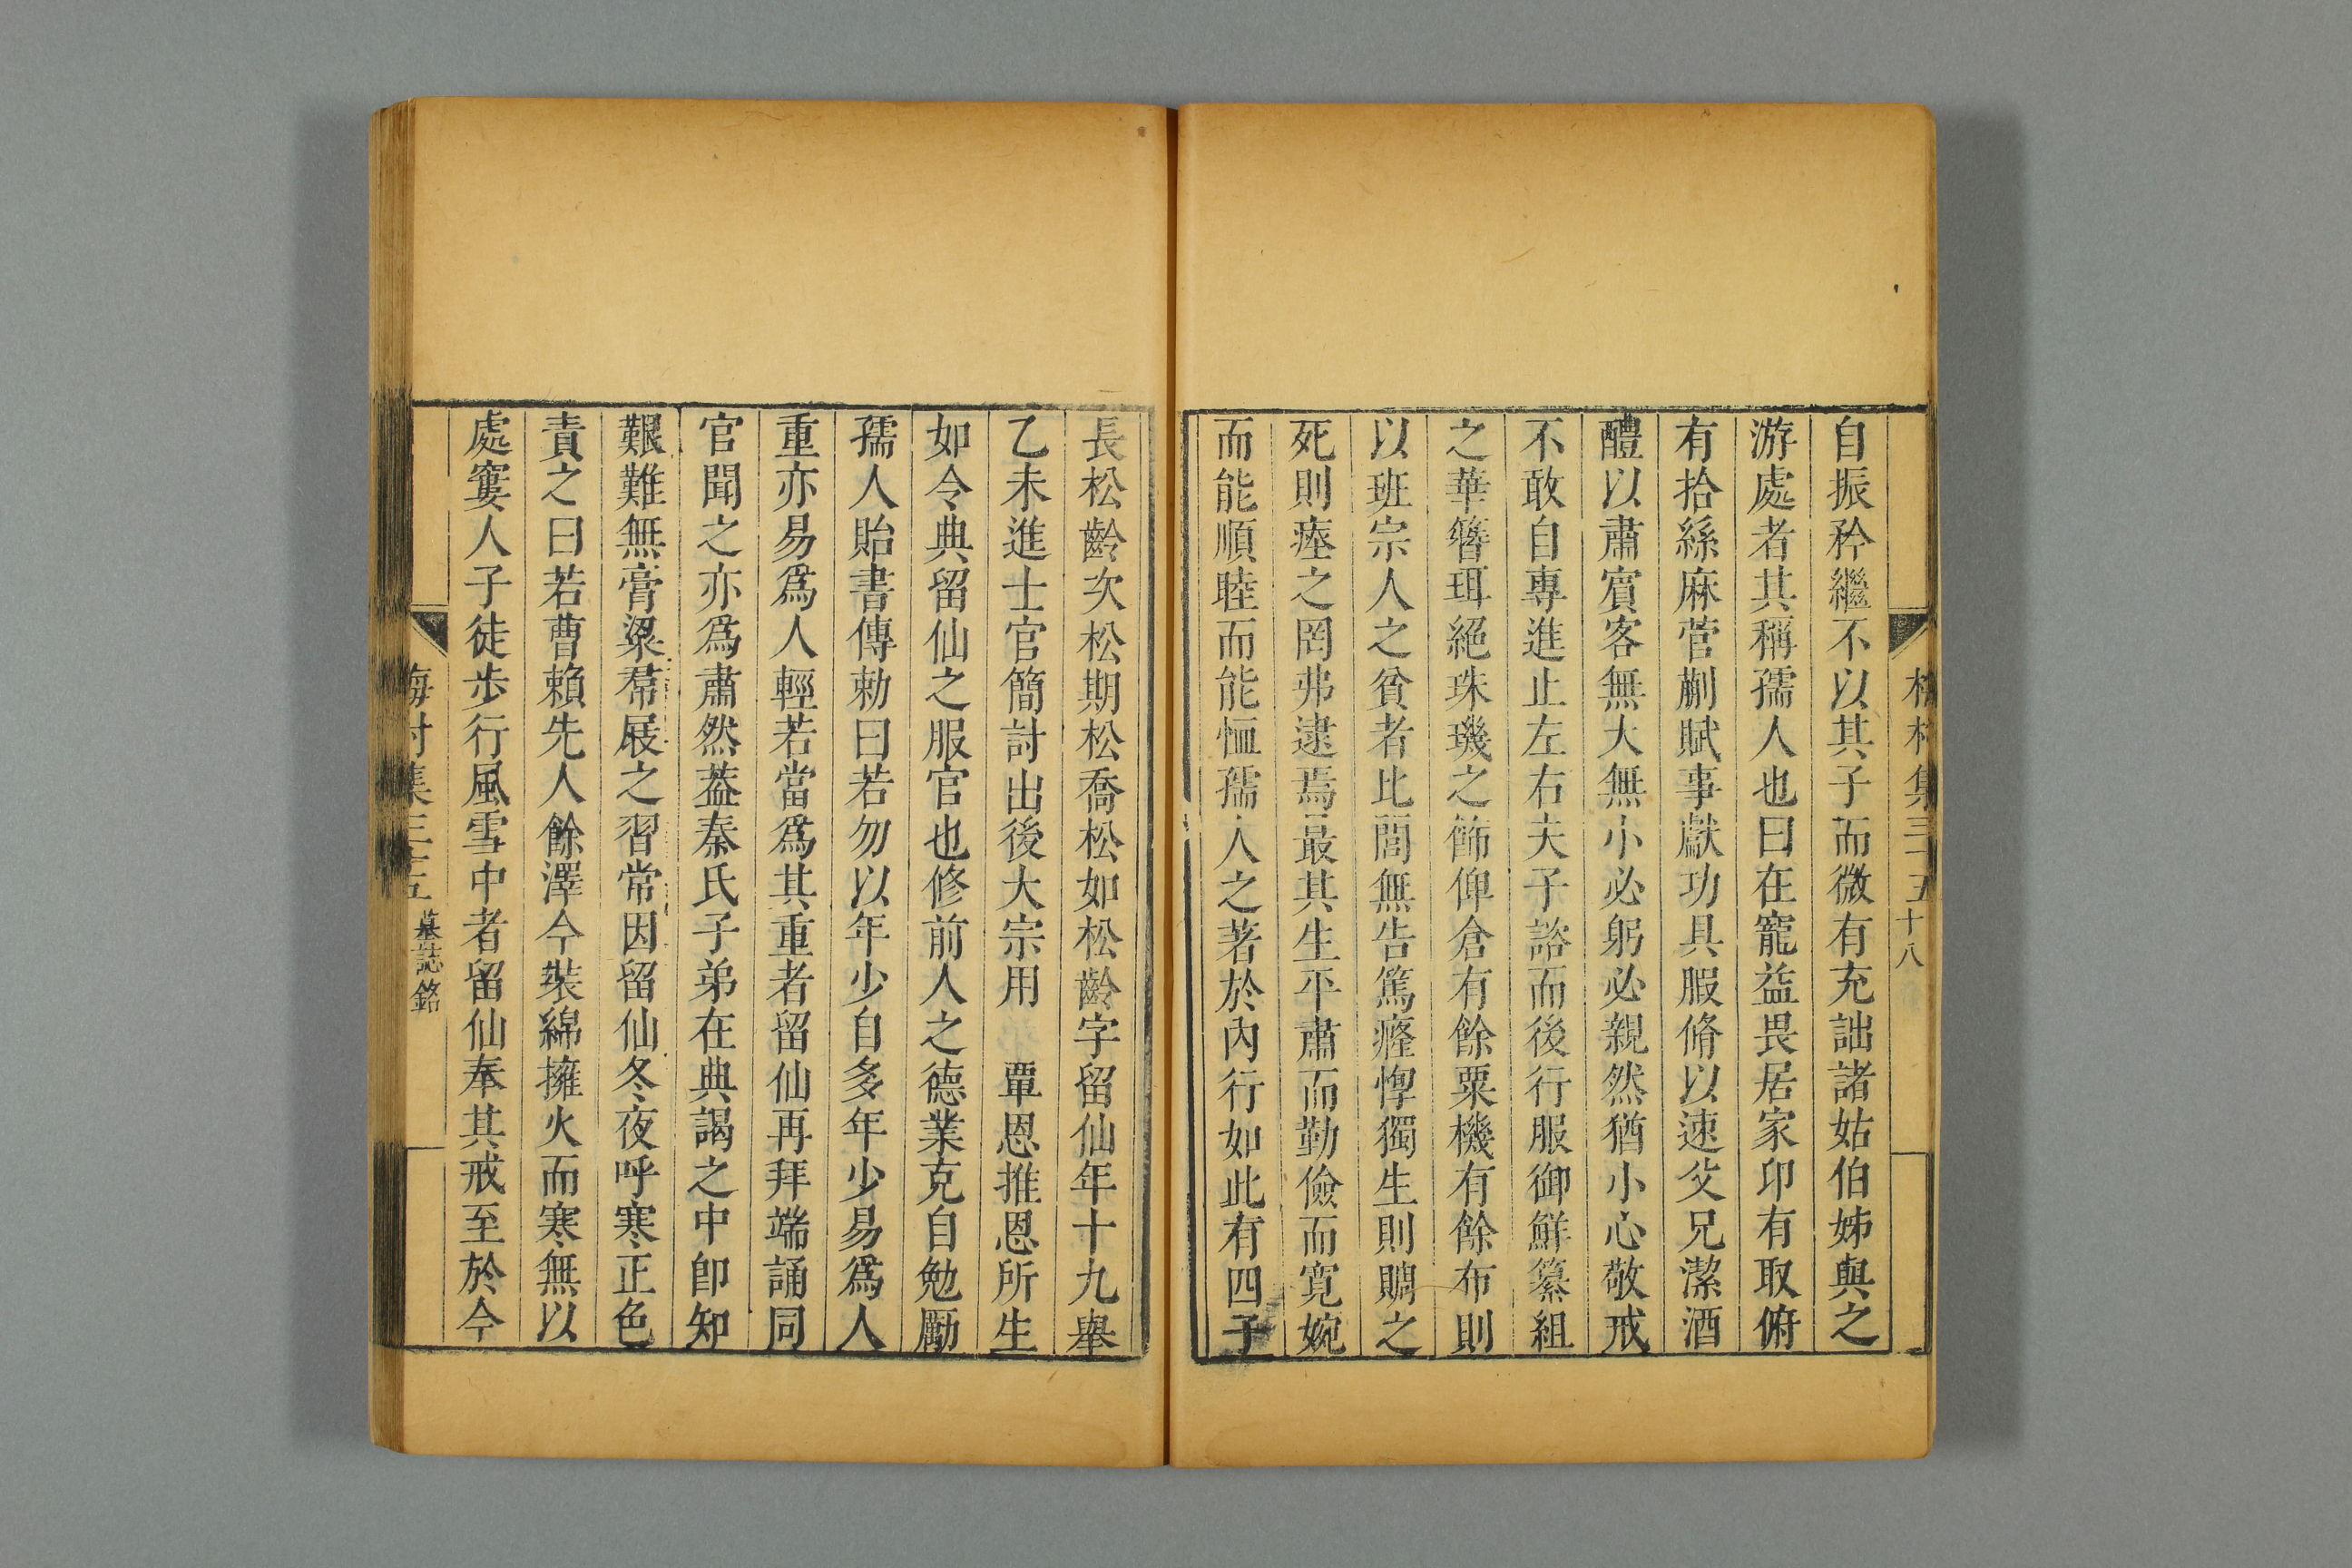 自振矜繼不以其子而微有充詘諸姑伯姊與之
游處者其稱孺人也曰在寵益畏居家卬有取俯
有拾絲麻菅蒯賦事獻功具服脩以速父兄潔酒
醴以肅賓客無大無小必躬必親然猶小心敬戒
不敢自專進止左右夫子諮而後行服御鮮纂組
之華簪珥絕珠璣之飾俾倉有餘粟機有餘布則
以班宗人之貧者比閭無告篤癃惸獨生則賙之
死則瘞之罔弗逮焉最其生平肅而勤儉而寬婉
而能順睦而能恤孺人之著於內行如此有四子
長松齡次松期松喬松如松齡字留仙年十九舉
乙未進士官簡討出後大宗用　覃恩推恩所生
如令典留仙之服官也修前人之德業克自勉勵
孺人貽書傳勅曰若勿以年少自多年少易爲人
重亦易爲人輕若當爲其重者留仙再拜端誦同
官聞之亦爲肅然葢秦氏子弟在典謁之中卽知
艱難無膏粱帬屐之習常因留仙冬夜呼寒正色
責之曰若曹賴先人餘澤今裝綿擁火而寒無以
處窶人子徒步行風雪中者留仙奉其戒至於今
梅村集三十五
十八
梅村集三十五
墓誌銘